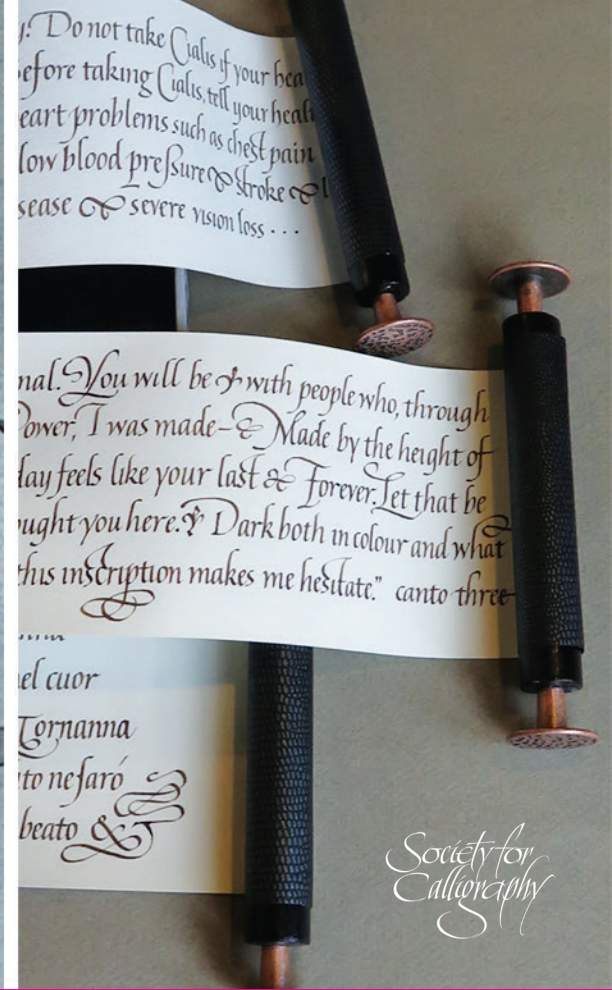 y! Do not take Cialis if your hea
efore taking Cialis, tell your healt
eart problems such as chest pain
low blood preſsure & stroke & l
sease & severe vision loss . . .
nal. You will be with people who, through
Power, I was made – & Made by the height of
day feels like your last & Forever. Let that be
ought you here. Dark both in colour and what
this inscription makes me hesitate." canto three
el cuor
Tornanna
to ne ſaró
beato &
Society for
Calligraphy